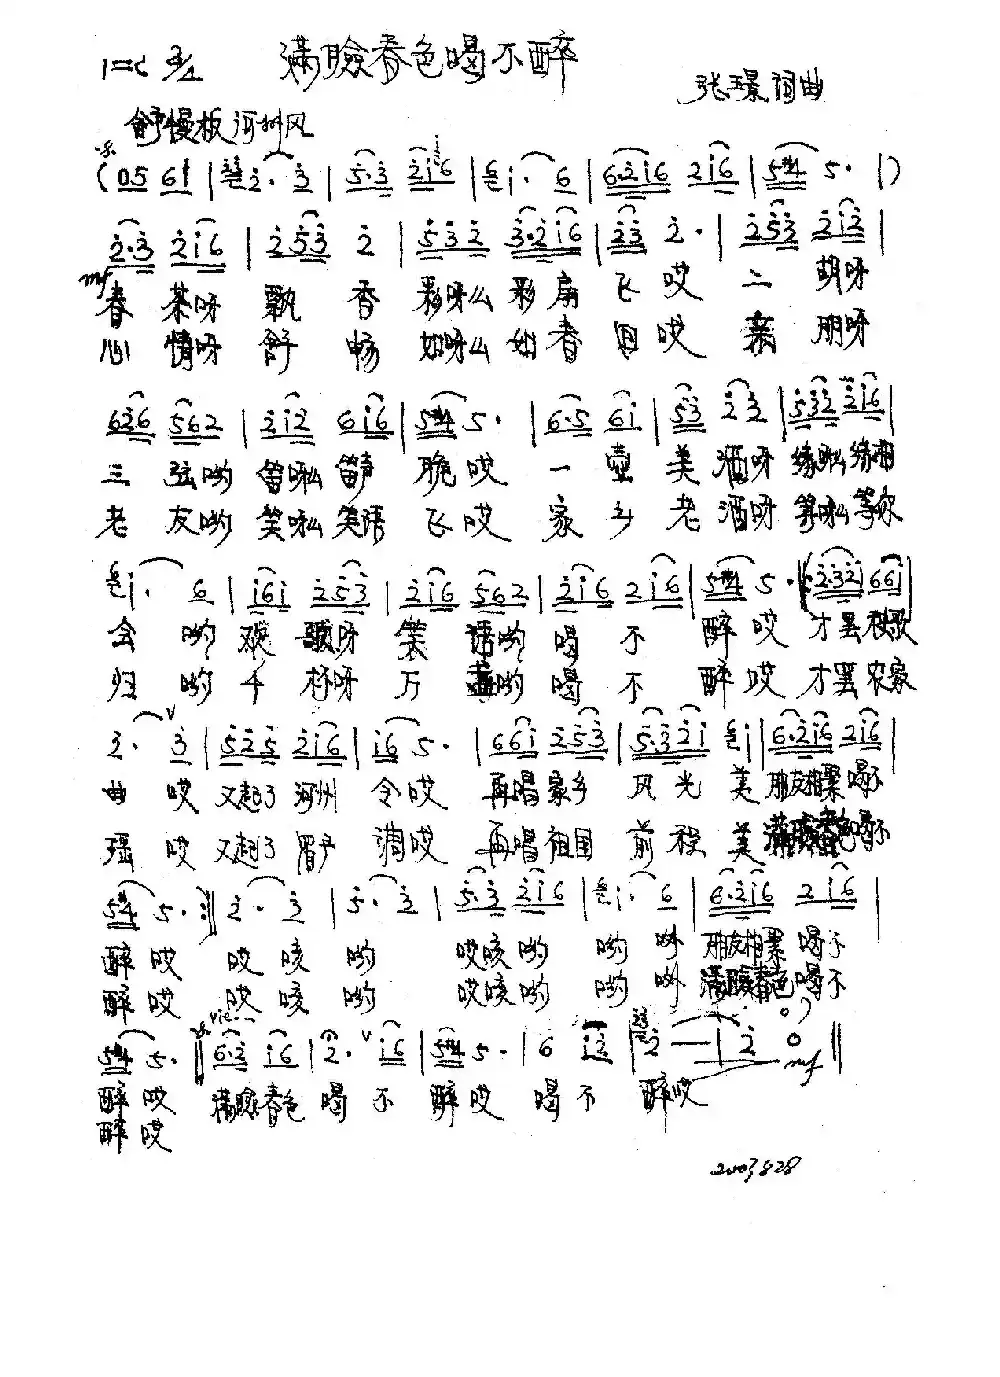 1=C 2/4 满臉春色喝不醉
张璟词曲
舒慢板 河州风
(05 61 | 2· 3 | 5·3 2i6 | i· 6 | 6·2i6 2i6 | 5#4 5· | )
2·3 2i6 | 253 2 | 532 3·2i6 | 23 2· | 253 2i2 |
mf
春 茶呀 飘 香 彩呀么彩扇 飞哎 二 胡呀
心 情呀 舒 畅 如呀么如春 回哎 亲 朋呀
626 562 | 2i2 6i6 | 5#4 5· | 6·5 6i | 53 23 | 532 2i6 |
三 弦哟 笛呀么笛声 脆哎 一 壶 美 酒呀 缘呀么缘相
老 友哟 笑呀么笑语 飞哎 家 乡 老 酒呀 等呀么等你
i· 6 | i6i 253 | 2i6 562 | 2i6 2i6 | 5#4 5· (5 2·32i 66i |
会 哟 欢 歌呀 笑 语哟 喝 不 醉哎 才罢秧歌
归 哟 千 杯呀 万 盏哟 喝 不 醉哎 才罢农家
3· 3 | 525 2i6 | i6 5· | 66i 253 | 5·32i i | 6·2i6 2i6 |
曲 哎 又起了河州 令哎 再唱家乡 风光 美 朋友相聚喝不
瑶 哎 又起了眉户 调哎 再唱祖国 前程 美 满臉春色喝不
5#4 5· :|| 2· 3 | 5· 3 | 5·3 2i6 | i· 6 | 6·2i6 2i6 |
醉哎 哎 咳 哟 哎咳哟 哟 咻 朋友相聚 喝不
醉哎 哎 咳 哟 哎咳哟 哟 咻 满臉春色喝不
5#4 5· || 6·2 i6 | 2· i6 | 5#4 5· | 6 i2 | 2 — | 2 0 ||
mf
醉哎 满臉春色 喝 不 醉哎 喝 不 醉哎
醉哎
2003,8 28